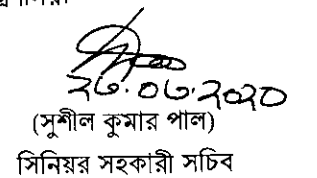 ২৮.০৬.২০২০
(সুশীল কুমার পাল)
সিনিয়র সহকারী সচিব